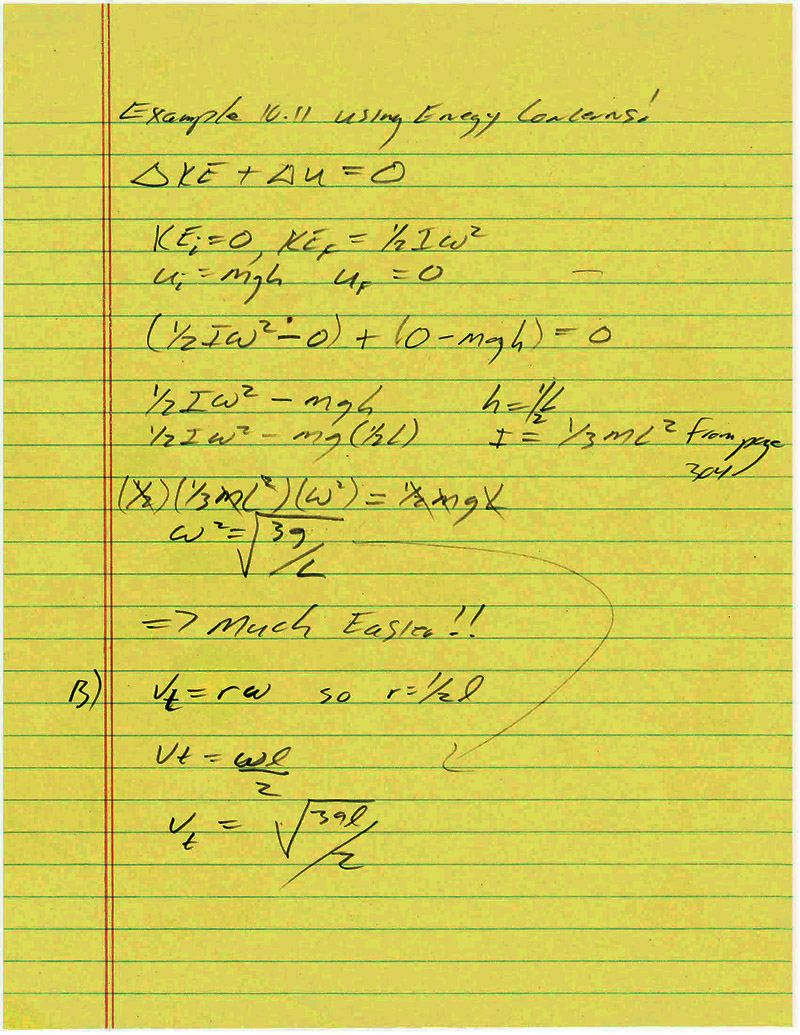 Example 10.11 using Enegy Concerns!
ΔKE + Δu = 0
KEi=0, KEf = 1/2 I ω²
ui = mgh uf = 0 —
(1/2 I ω² - 0) + (0 - mgh) = 0
1/2 I ω² - mgh h = 1/2 L
1/2 I ω² - mg(1/2 L) I = 1/3 mL² From page 304
(1/2)(1/3 mL²)(ω²) = 1/2 mgL
ω² = √3g/L
=> Much Easier!!
B) Vt = rω so r = 1/2 l
Vt = ωl/2
Vt = √3gl/2